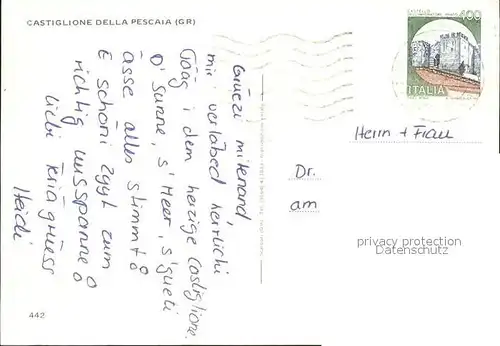 CASTIGLIONE DELLA PESCAIA (GR)
Grüezi mitenand,
mir verläbed herrlichi
Tääg i dem herzige Castiglione.
D' Sunne, s'Meer, s'gueti
ässe alles stimmt !
E schöni Zyyt zum
richtig usspanne !
Liebi Feriägrüess
Heidi
442
400
ITALIA
Herrn + Frau
Dr.
am
privacy protection
Datenschutz